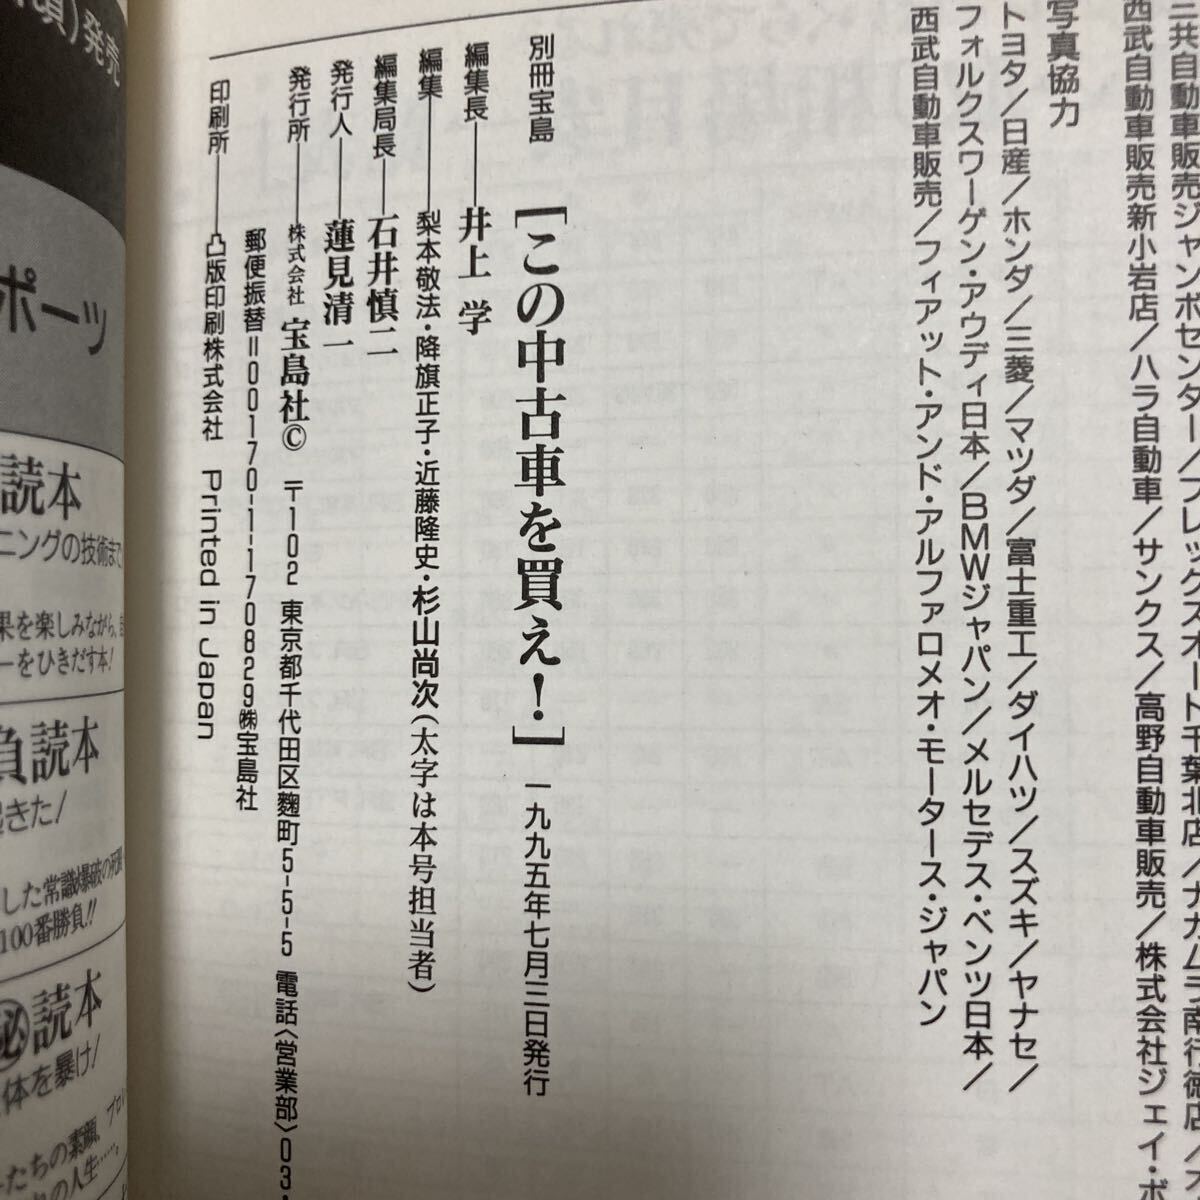 三共自動車販売ジャンボセンター/フレックスオート千葉北店/ナカムラ南行徳店/
西武自動車販売新小岩店/ハラ自動車/サンクス/高野自動車販売/株式会社ジェイ・ボ
写真協力
トヨタ/日産/ホンダ/三菱/マツダ/富士重工/ダイハツ/スズキ/ヤナセ/
フォルクスワーゲン・アウディ日本/BMWジャパン/メルセデス・ベンツ日本/
西武自動車販売/フィアット・アンド・アルファロメオ・モータース・ジャパン
別冊宝島 [この中古車を買え!] 一九九五年七月三日発行
編集長―井上 学
編集―梨本敬法・降旗正子・近藤隆史・杉山尚次(太字は本号担当者)
編集局長―石井慎二
発行人―蓮見清一
発行所―株式会社 宝島社© 〒102 東京都千代田区麴町5-5-5 電話〈営業部〉03・
郵便振替=00170-1-170829㈱宝島社
印刷所―凸版印刷株式会社 Printed in Japan
頃)発売
ポーツ
読本
ニングの技術まで
果を楽しみながら、
ーをひきだす本!
負読本
起きた/
した常識爆破の死闘
100番勝負!!
㊙読本
体を暴け/
たちの素顔、プロ
の人生……。